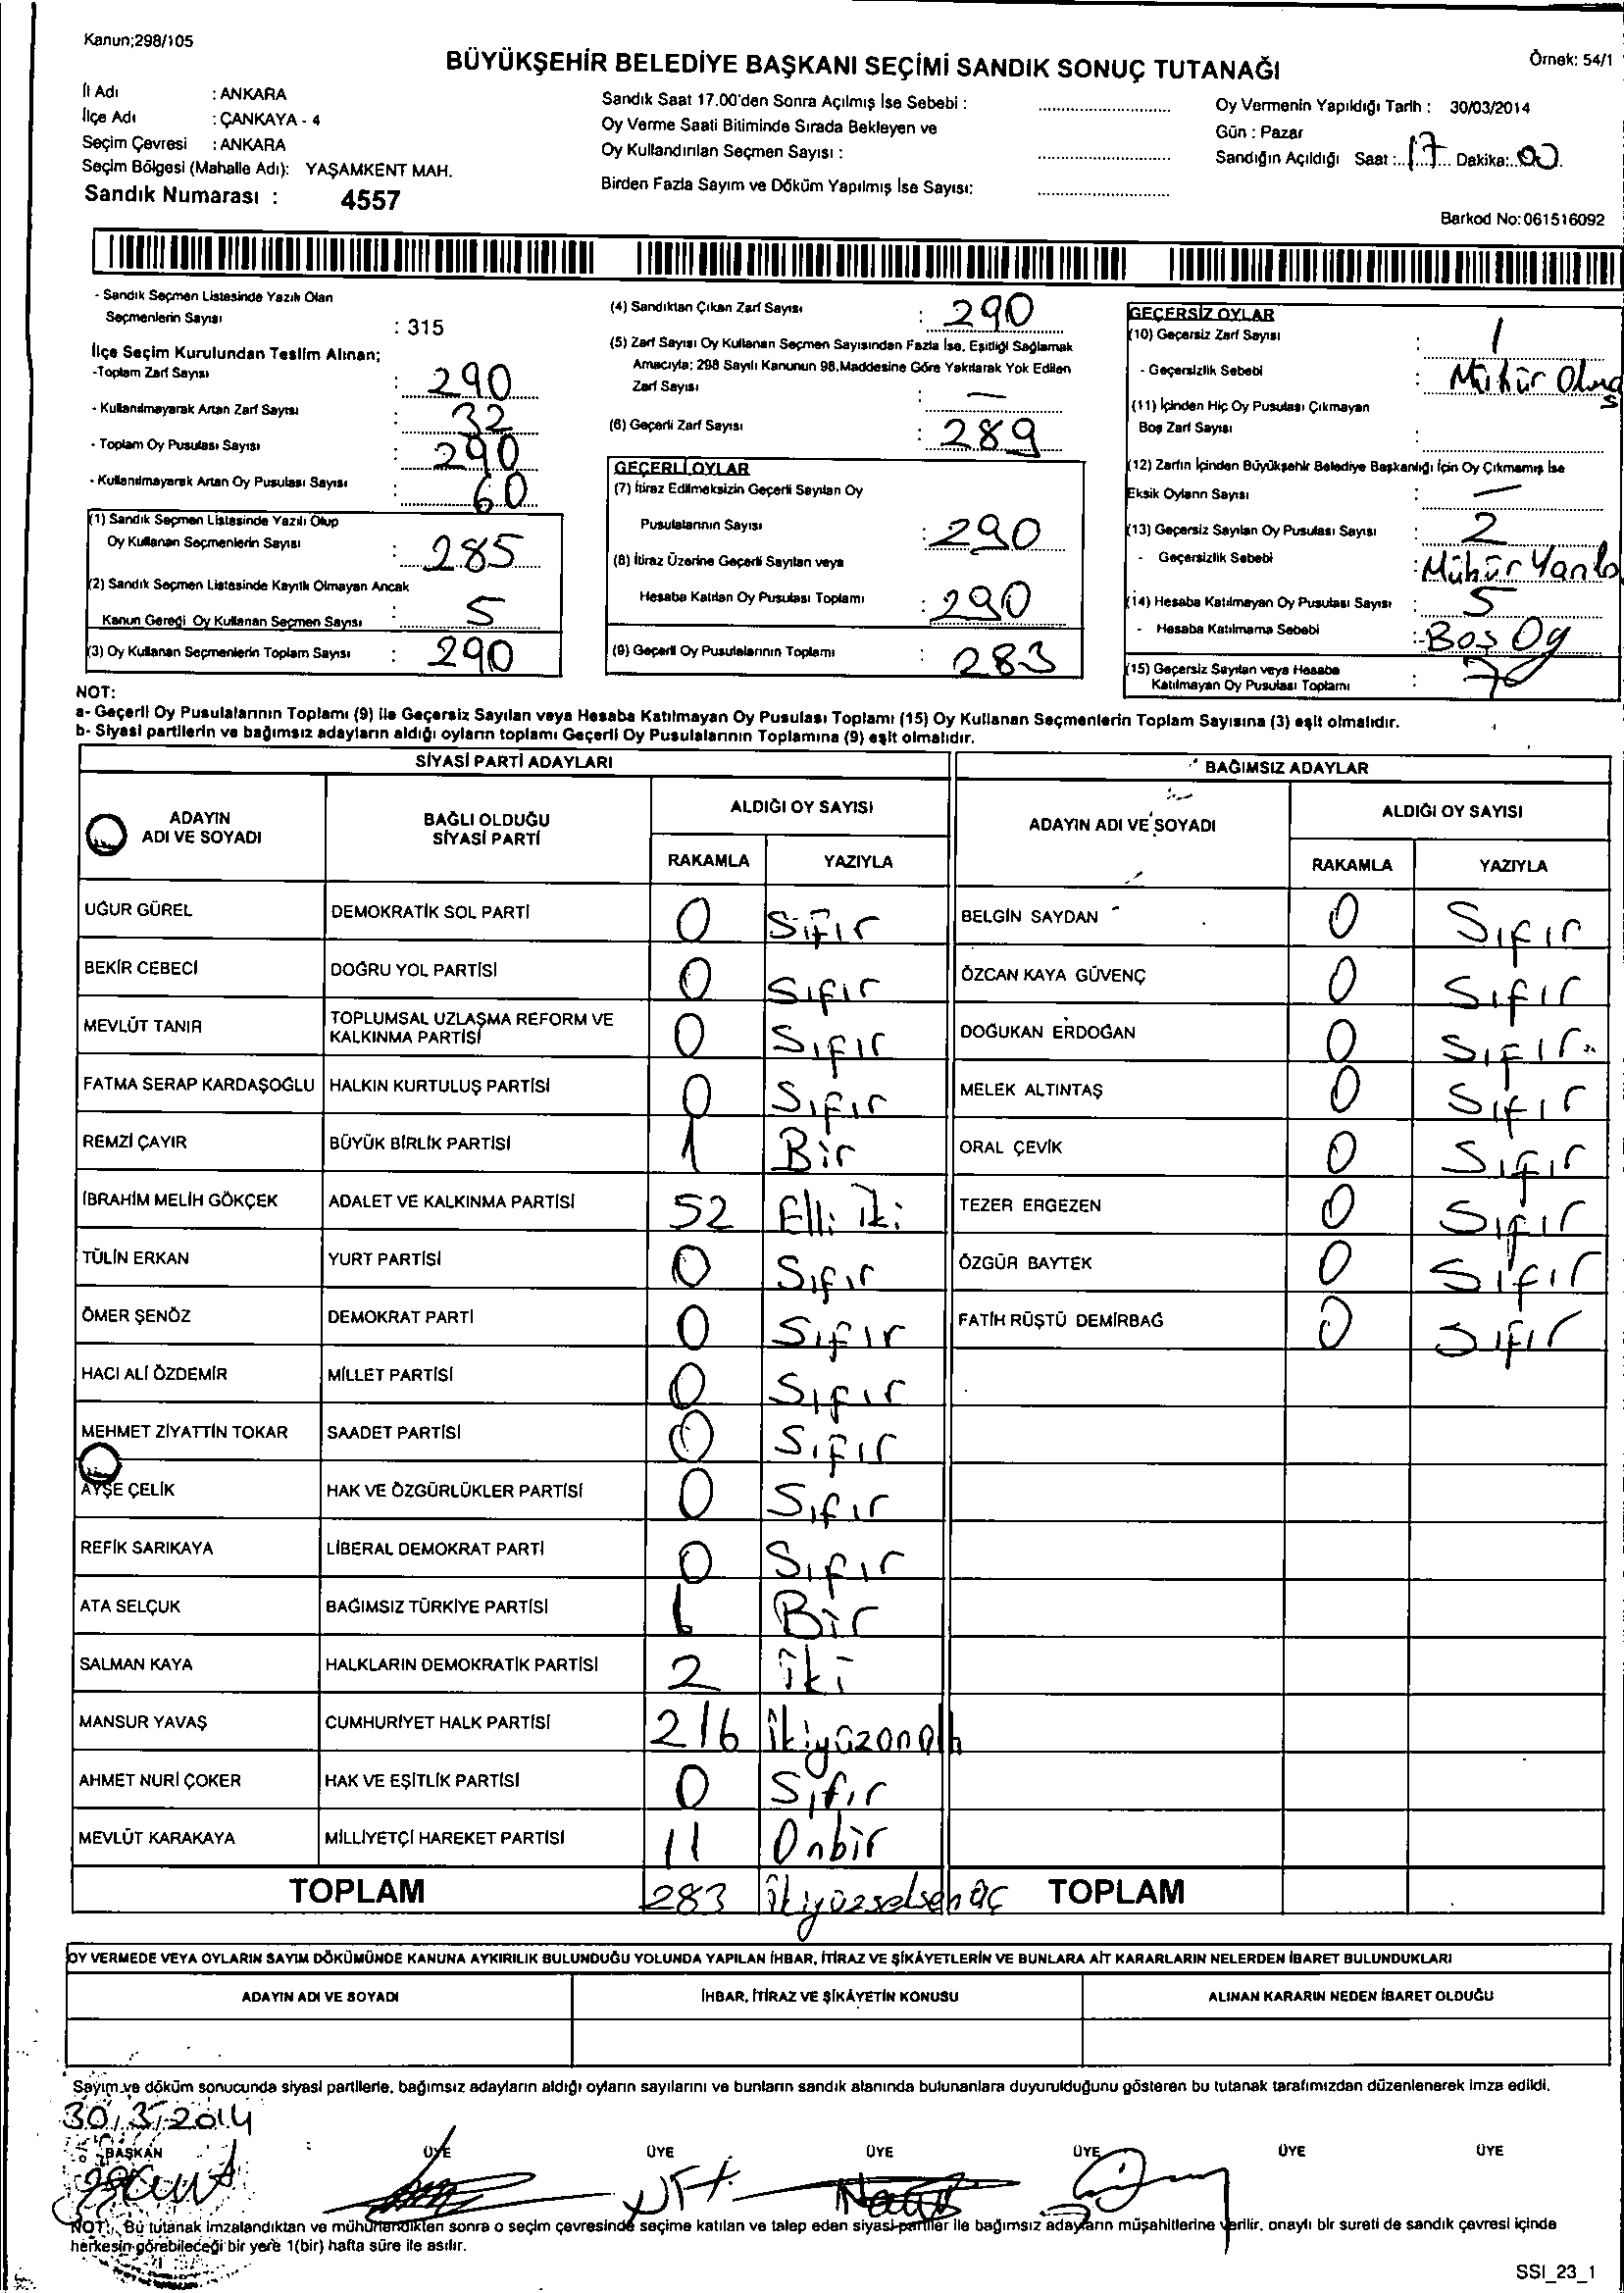 Kanun;298/105
BÜYÜKŞEHİR BELEDİYE BAŞKANI SEÇİMİ SANDIK SONUÇ TUTANAĞI
Örnek: 54/1
İl Adı : ANKARA
İlçe Adı : ÇANKAYA - 4
Seçim Çevresi : ANKARA
Seçim Bölgesi (Mahalle Adı): YAŞAMKENT MAH.
Sandık Numarası : 4557
Sandık Saat 17.00'den Sonra Açılmış İse Sebebi :
Oy Verme Saati Bitiminde Sırada Bekleyen ve
Oy Kullandırılan Seçmen Sayısı :
Birden Fazla Sayım ve Döküm Yapılmış İse Sayısı:
Oy Vermenin Yapıldığı Tarih : 30/03/2014
Gün : Pazar
Sandığın Açıldığı Saat : 17 Dakika: 00
Barkod No: 061516092
- Sandık Seçmen Listesinde Yazılı Olan
Seçmenlerin Sayısı : 315
İlçe Seçim Kurulundan Teslim Alınan;
-Toplam Zarf Sayısı : 290
- Kullanılmayarak Artan Zarf Sayısı : 32
- Toplam Oy Pusulası Sayısı : 290
- Kullanılmayarak Artan Oy Pusulası Sayısı : 60
(1) Sandık Seçmen Listesinde Yazılı Olup
Oy Kullanan Seçmenlerin Sayısı : 285
(2) Sandık Seçmen Listesinde Kayıtlı Olmayan Ancak
Kanun Gereği Oy Kullanan Seçmen Sayısı : 5
(3) Oy Kullanan Seçmenlerin Toplam Sayısı : 290
(4) Sandıktan Çıkan Zarf Sayısı : 290
(5) Zarf Sayısı Oy Kullanan Seçmen Sayısından Fazla İse, Eşitliği Sağlamak
Amacıyla; 298 Sayılı Kanunun 98.Maddesine Göre Yakılarak Yok Edilen
Zarf Sayısı : —
(6) Geçerli Zarf Sayısı : 289
GEÇERLİ OYLAR
(7) İtiraz Edilmeksizin Geçerli Sayılan Oy
Pusulalarının Sayısı : 290
(8) İtiraz Üzerine Geçerli Sayılan veya
Hesaba Katılan Oy Pusulası Toplamı : 290
(9) Geçerli Oy Pusulalarının Toplamı : 283
GEÇERSİZ OYLAR
(10) Geçersiz Zarf Sayısı : 1
- Geçersizlik Sebebi : Mühür Olmuş
(11) İçinden Hiç Oy Pusulası Çıkmayan
Boş Zarf Sayısı :
(12) Zarfın İçinden Büyükşehir Belediye Başkanlığı İçin Oy Çıkmamış İse
Eksik Oyların Sayısı : —
(13) Geçersiz Sayılan Oy Pusulası Sayısı : 2
- Geçersizlik Sebebi : Mühür
(14) Hesaba Katılmayan Oy Pusulası Sayısı : 5
- Hesaba Katılmama Sebebi : Boş Oy
(15) Geçersiz Sayılan veya Hesaba
Katılmayan Oy Pusulası Toplamı : 7
NOT:
a- Geçerli Oy Pusulalarının Toplamı (9) ile Geçersiz Sayılan veya Hesaba Katılmayan Oy Pusulası Toplamı (15) Oy Kullanan Seçmenlerin Toplam Sayısına (3) eşit olmalıdır.
b- Siyasi partilerin ve bağımsız adayların aldığı oyların toplamı Geçerli Oy Pusulalarının Toplamına (9) eşit olmalıdır.
SİYASİ PARTİ ADAYLARI
ADAYIN ADI VE SOYADI BAĞLI OLDUĞU SİYASİ PARTİ ALDIĞI OY SAYISI
RAKAMLA YAZIYLA
UĞUR GÜREL DEMOKRATİK SOL PARTİ 0 Sıfır
BEKİR CEBECİ DOĞRU YOL PARTİSİ 0 Sıfır
MEVLÜT TANIR TOPLUMSAL UZLAŞMA REFORM VE KALKINMA PARTİSİ 0 Sıfır
FATMA SERAP KARDAŞOĞLU HALKIN KURTULUŞ PARTİSİ 0 Sıfır
REMZİ ÇAYIR BÜYÜK BİRLİK PARTİSİ 1 Bir
İBRAHİM MELİH GÖKÇEK ADALET VE KALKINMA PARTİSİ 52 Elli iki
TÜLİN ERKAN YURT PARTİSİ 0 Sıfır
ÖMER ŞENÖZ DEMOKRAT PARTİ 0 Sıfır
HACI ALİ ÖZDEMİR MİLLET PARTİSİ 0 Sıfır
MEHMET ZİYATTİN TOKAR SAADET PARTİSİ 0 Sıfır
AYŞE ÇELİK HAK VE ÖZGÜRLÜKLER PARTİSİ 0 Sıfır
REFİK SARIKAYA LİBERAL DEMOKRAT PARTİ 0 Sıfır
ATA SELÇUK BAĞIMSIZ TÜRKİYE PARTİSİ 1 Bir
SALMAN KAYA HALKLARIN DEMOKRATİK PARTİSİ 2 iki
MANSUR YAVAŞ CUMHURİYET HALK PARTİSİ 216 ikiyüzonaltı
AHMET NURİ ÇOKER HAK VE EŞİTLİK PARTİSİ 0 Sıfır
MEVLÜT KARAKAYA MİLLİYETÇİ HAREKET PARTİSİ 11 Onbir
TOPLAM 283 ikiyüzseksenüç
BAĞIMSIZ ADAYLAR
ADAYIN ADI VE SOYADI ALDIĞI OY SAYISI
RAKAMLA YAZIYLA
BELGİN SAYDAN 0 Sıfır
ÖZCAN KAYA GÜVENÇ 0 Sıfır
DOĞUKAN ERDOĞAN 0 Sıfır
MELEK ALTINTAŞ 0 Sıfır
ORAL ÇEVİK 0 Sıfır
TEZER ERGEZEN 0 Sıfır
ÖZGÜR BAYTEK 0 Sıfır
FATİH RÜŞTÜ DEMİRBAĞ 0 Sıfır
TOPLAM
OY VERMEDE VEYA OYLARIN SAYIM DÖKÜMÜNDE KANUNA AYKIRILIK BULUNDUĞU YOLUNDA YAPILAN İHBAR, İTİRAZ VE ŞİKÂYETLERİN VE BUNLARA AİT KARARLARIN NELERDEN İBARET BULUNDUKLARI
ADAYIN ADI VE SOYADI İHBAR, İTİRAZ VE ŞİKÂYETİN KONUSU ALINAN KARARIN NEDEN İBARET OLDUĞU
Sayım ve döküm sonucunda siyasi partilerle, bağımsız adayların aldığı oyların sayılarını ve bunların sandık alanında bulunanlara duyurulduğunu gösteren bu tutanak tarafımızdan düzenlenerek imza edildi.
30/3/2014
BAŞKAN ÜYE ÜYE ÜYE ÜYE ÜYE ÜYE
NOT: Bu tutanak imzalandıktan ve mühürlendikten sonra o seçim çevresinde seçime katılan ve talep eden siyasi partiler ile bağımsız adayların müşahitlerine verilir, onaylı bir sureti de sandık çevresi içinde
herkesin görebileceği bir yere 1(bir) hafta süre ile asılır.
SSI_23_1